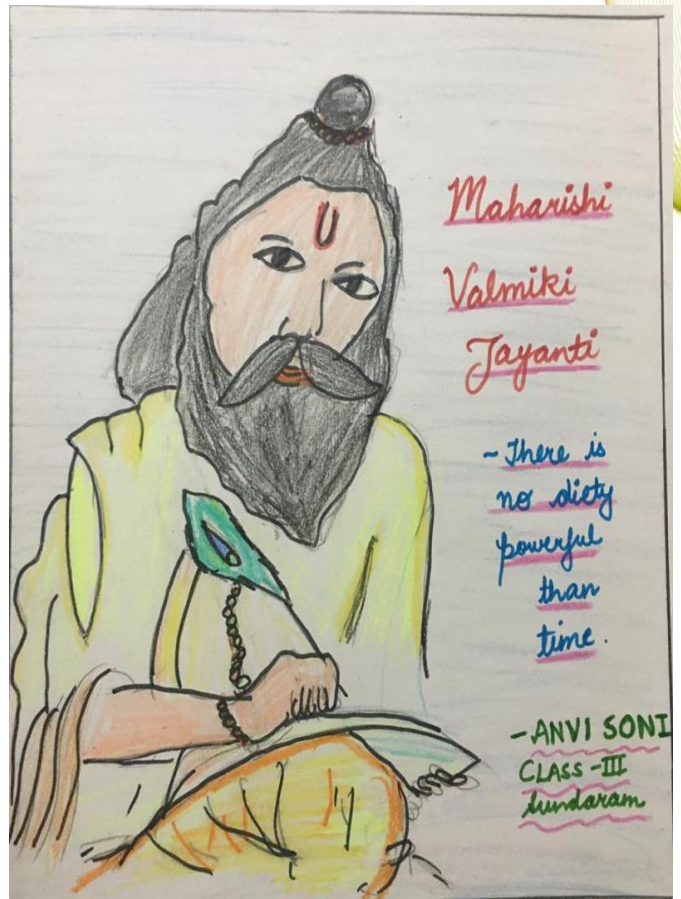 Maharishi
Valmiki
Jayanti
~ There is
no diety
powerful
than
time.
- ANVI SONI
CLASS - III
Sundaram